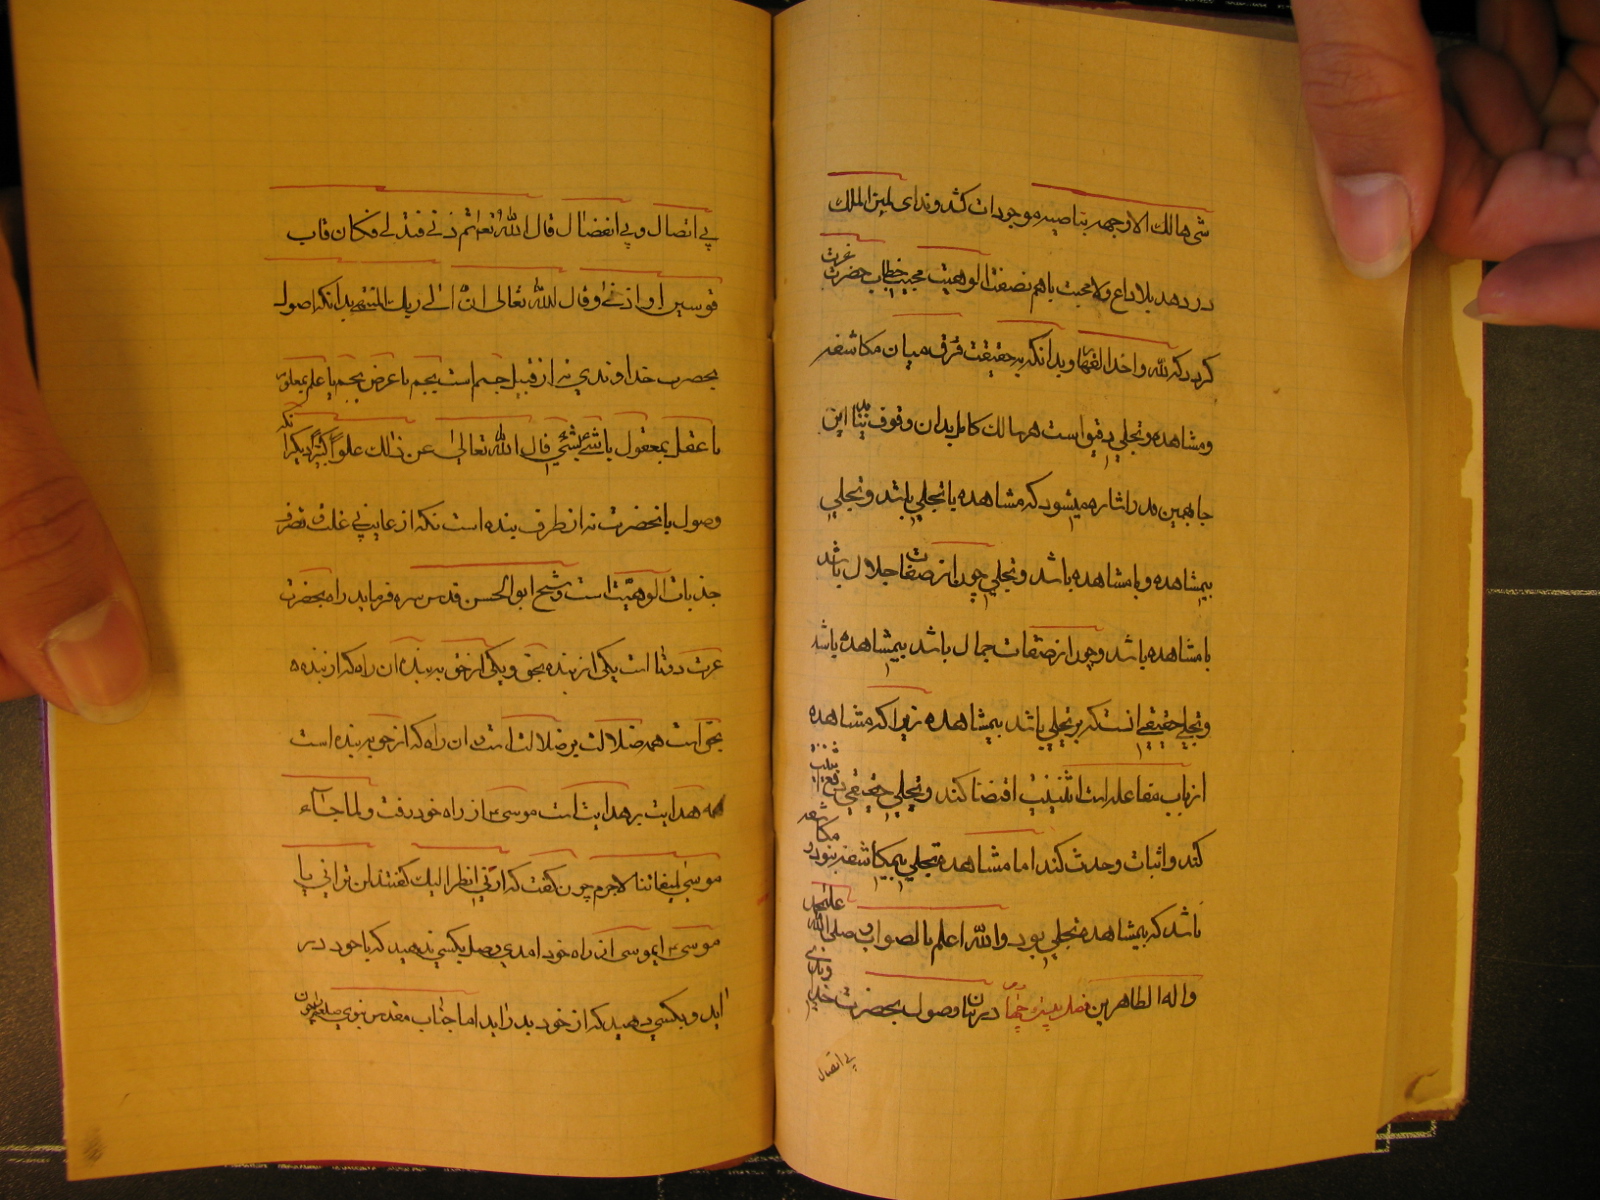 شی هالك الا وجهه بناصیه موجودات کشد و ندای لمن الملك
در دهد بلا داع ولا مجیب با هم بصفت الوهیت مجیب خطاب حضرت عزت
کردد که لله واحد القهار و بدانکه بحقیقت فرق میان مکاشفه
و مشاهده و تجلی دقیق است هر سالك کامل بدان وقوف نیابد این
جا همین قدر اشاره میشود که مشاهده با تجلی باشد و تجلی
بیمشاهده و با مشاهده باشد و تجلی چون از صفات جلال باشد
با مشاهده باشد و چون از صفات جمال باشد بیمشاهده باشد
و تجلی حقیقی انست که بی تجلی باشد بیمشاهده زیرا که مشاهده
از باب مفاعله است اثنینیت اقتضا کند و تجلی حقیقی رفع اثنینیت
کند و اثبات وحدت کند اما مشاهده و تجلی بیمکاشفه نبود و مکاشفه
باشد که بیمشاهده و تجلی بود والله اعلم بالصواب و صلی الله علی محمد
واله الطاهرین فصل بیست و چهارم در بیان وصول بحضرت خداوندی
بی اتصال
بی اتصال و بی انفصال قال الله تعالی ثم دنی فتدلی فکان قاب
قوسین او ادنی و قال الله تعالی ان الی ربك المنتهی بدانکه اصول
بحضرت خداوندی نه از قبیل جسم است بجسم یا عرض بجسم یا علم بمعلوم
یا عقل بمعقول یا شئ بشئ قال الله تعالی عن ذلك علوا کبیرا دیکر انکه
وصول بانحضرت نه از طرف بنده است بلکه از عنایت بی علت و تصرف
جذبات الوهیت است و شیخ ابوالحسن قدس سره فرماید راه بحضرت
عزت دوتا است یکی از بنده بحق و یکی از حق به بنده ان راه که از بنده
بحق است همه ضلالت بر ضلالت است و ان راه که از حق به بنده است
همه هدایت بر هدایت است موسی ع از راه خود رفت و لما جاء
موسی لمیقاتنا لاجرم چون کفت که ارنی انظر الیك کفتند لن ترانی یا
موسی ع ای موسی از راه خود امدی وصل بکسی ندهید که با خود در
اید و بکسی دهید که از خود بدر اید اما جناب مقدس نبوی صلی الله علیه واله چون